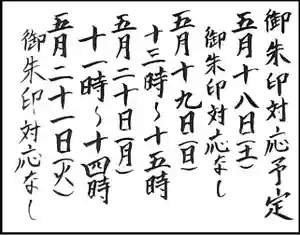 御朱印対応予定
五月十八日(土)
御朱印対応なし
五月十九日(日)
十三時〜十五時
五月二十日(月)
十一時〜十四時
五月二十一日(火)
御朱印対応なし